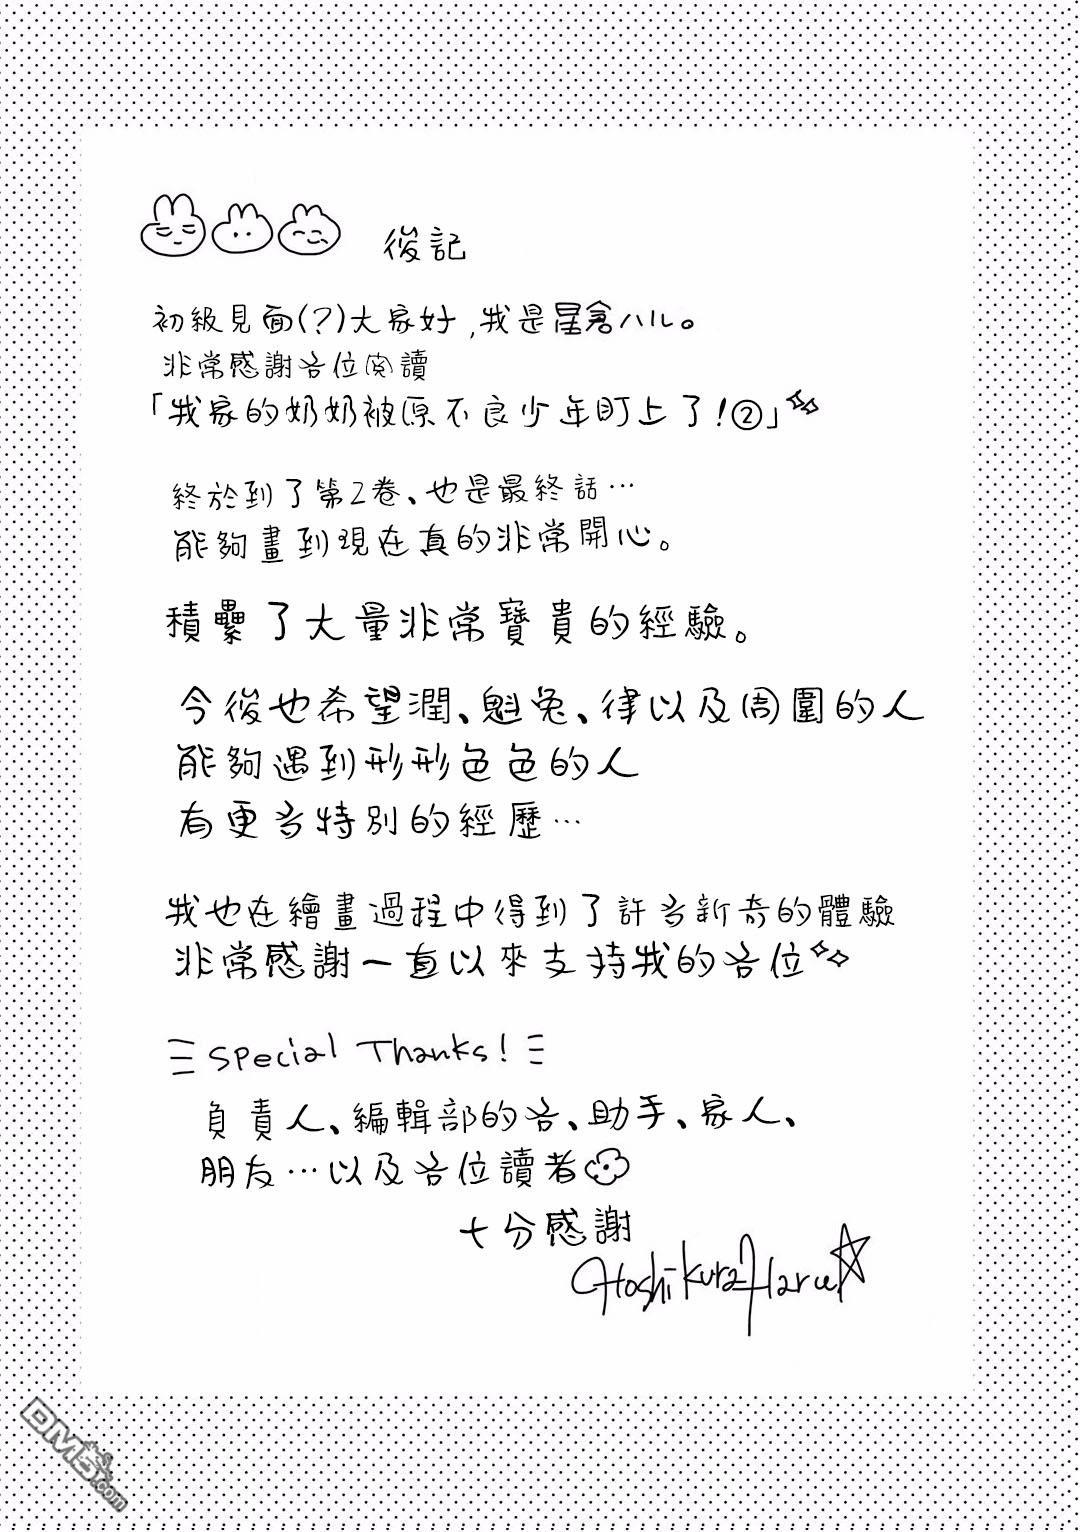 後記
初級見面(?)大家好,我是星倉ハル。
非常感謝各位閱讀
「我家的奶奶被原不良少年盯上了!②」
終於到了第2卷、也是最終話…
能夠畫到現在真的非常開心。
積纍了大量非常寶貴的經驗。
今後也希望潤、魁兔、律以及周圍的人
能夠遇到形形色色的人
有更多特別的經歷…
我也在繪畫過程中得到了許多新奇的體驗
非常感謝一直以來支持我的各位
Special Thanks!
負責人、編輯部的各、助手、家人、
朋友…以及各位讀者
十分感謝
Hoshikura Haru
DM5.com